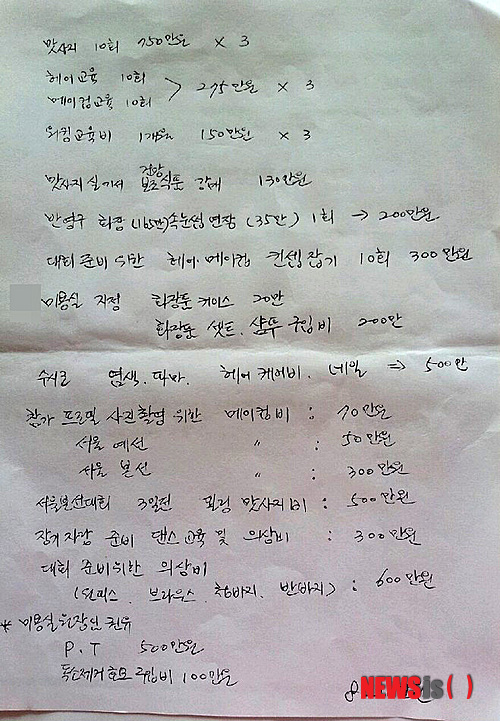 맛사지 10회 750만원 × 3
헤어교육 10회
메이컵교육 10회 > 275만원 × 3
워킹교육비 1개월 150만원 × 3
맛사지실기서 전망 식툰 강매 130만원
반영구 화장 (165만) 속눈썹 연장 (35만) 1회 → 200만원
대회 준비 위한 헤어·메이컵 컨셉잡기 10회 300만원
미용실 지정 화장품 케이스 20만
화장품 셋트. 샴푸 구입비 200만
수시로 염색. 파마. 헤어 케어비. 네일 ⇒ 500만
참가 프로필 사진촬영 위한 메이컵비 : 70만원
서울 예선 〃 : 50만원
서울 본선 〃 : 300만원
서울본선대회 3일전 맛사지비 : 500만원
장기자랑 준비 댄스교육 및 의상비 : 300만원
대회 준비위한 의상비
(원피스. 브라우스. 청바지. 반바지) : 600만원
* 미용실 원장님 권유
P.T 500만원
독소제거 효모 구입비 100만원
8
NEWSis( )